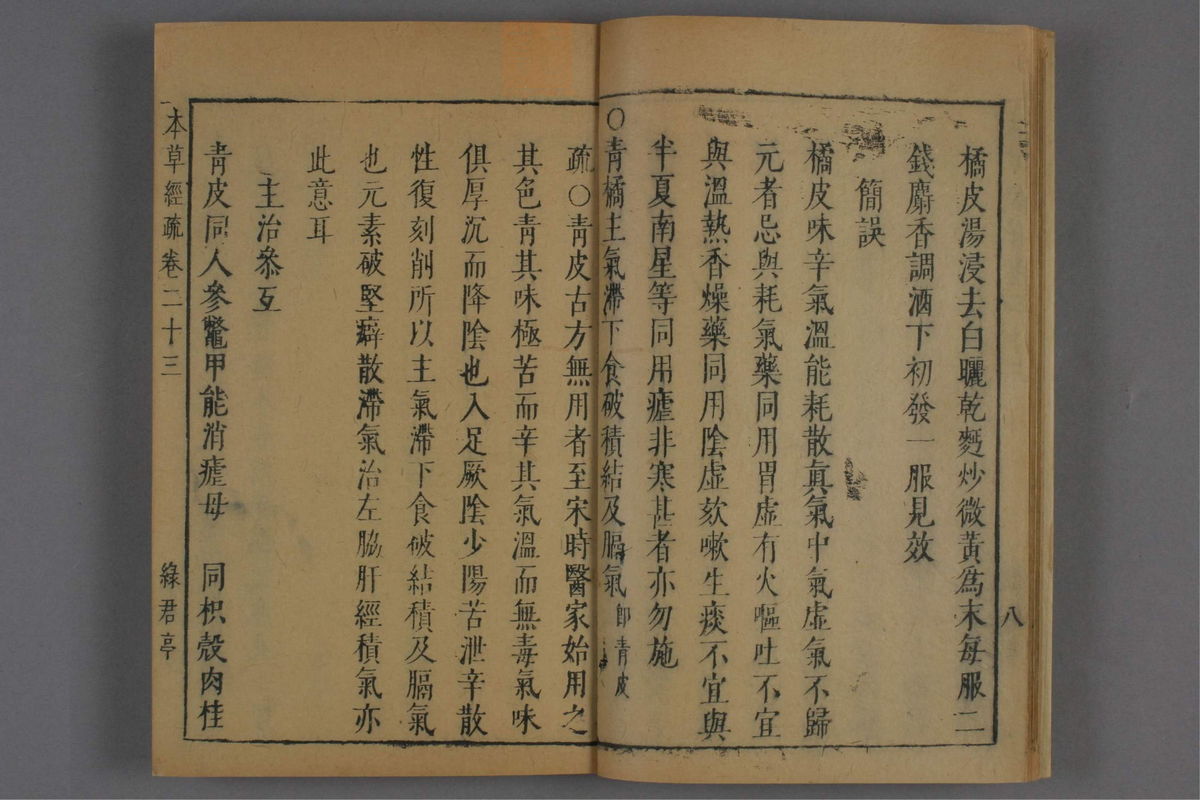 橘皮湯浸去白曬乾麪炒微黃爲末每服二
錢麝香調酒下初發一服見效
簡誤
橘皮味辛氣溫能耗散眞氣中氣虛氣不歸
元者忌與耗氣藥同用胃虛有火嘔吐不宜
與溫熱香燥藥同用陰虛欬嗽生痰不宜與
半夏南星等同用瘧非寒甚者亦勿施
〇青橘主氣滯下食破積結及膈氣卽青皮
疏〇青皮古方無用者至宋時醫家始用之
其色青其味極苦而辛其氣溫而無毒氣味
俱厚沉而降陰也入足厥陰少陽苦泄辛散
性復刻削所以主氣滯下食破結積及膈氣
也元素破堅癖散滯氣治左脇肝經積氣亦
此意耳
主治參互
青皮同人參鼈甲能消瘧母 同枳殼肉桂
本草經疏 卷二十三 綠君亭
八